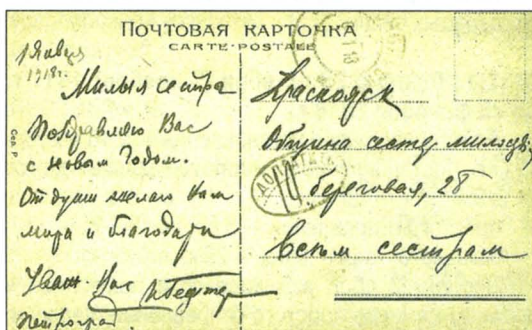 ПОЧТОВАЯ КАРТОЧКА
CARTE-POSTALE
1 Января
1918г.
Милыя сестра
Поздравляю Вас
с новым Годом.
От души желаю Вам
мира и благодари
Уваж. Вас
Петроград.
Сер. Р
ДОПЛАТИТЬ
10
Красноярск
Община сестер милосер.
береговая, 28
всем сестрам